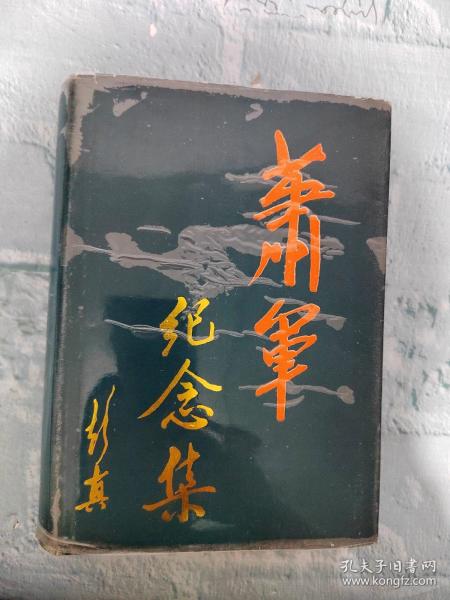 萧军
纪念集
彭真
孔夫子旧书网
www.kongfz.com